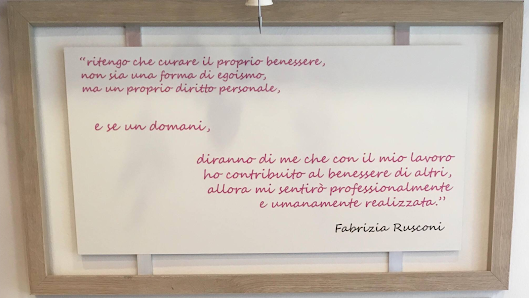 “ritengo che curare il proprio benessere,
non sia una forma di egoismo,
ma un proprio diritto personale,
e se un domani,
diranno di me che con il mio lavoro
ho contribuito al benessere di altri,
allora mi sentirò professionalmente
e umanamente realizzata.”
Fabrizia Rusconi